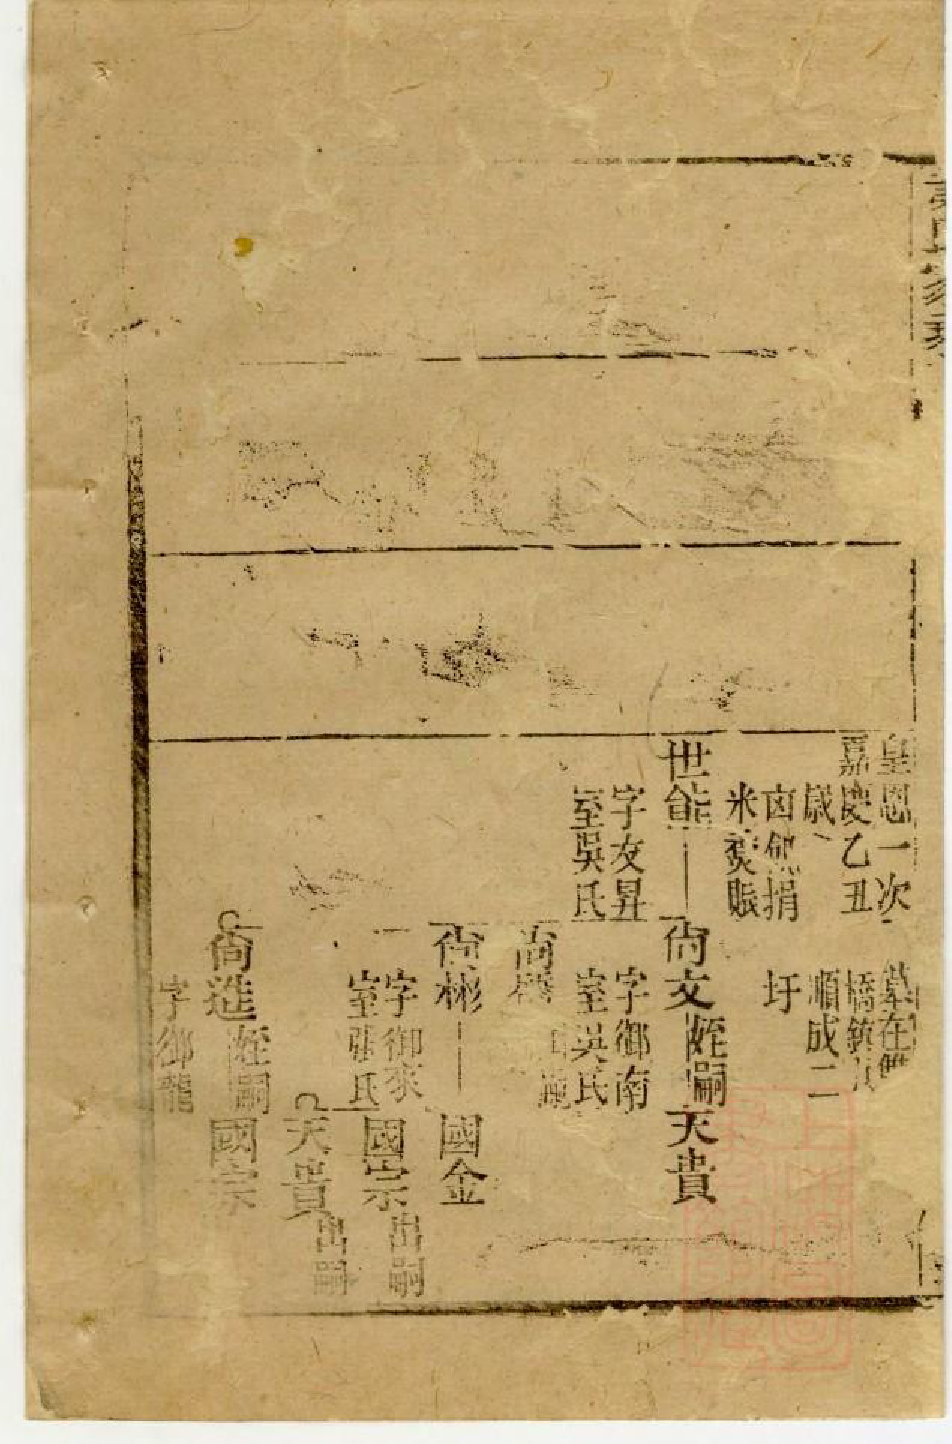 皇恩一次
嘉慶乙丑
歲
捐
米糜賑
世能
字友昇
室吳氏
墓在雙
橋鎮
順成二
圩
尙文
姪嗣
字御南
室吳氏
尙
尙彬
字御來
室張氏
尙進
姪嗣
字御龍
天貴
國金
國宗
出嗣
天貴
出嗣
國宗